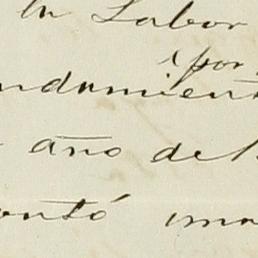 la Labor
por
ndamient
año de 1
ontó una